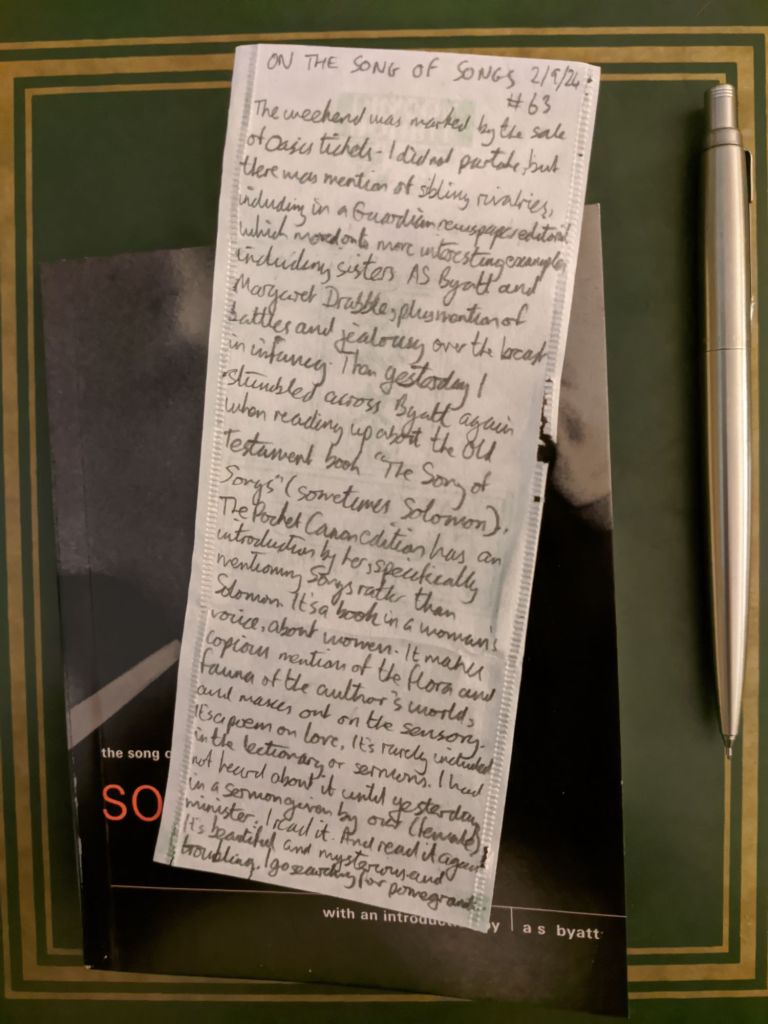 ON THE SONG OF SONGS 2/9/24
#63
The weekend was marked by the sale
of Oasis tickets - I did not partake, but
there was mention of sibling rivalries,
including in a Guardian newspaper editorial
which moved onto more interesting examples
including sisters AS Byatt and
Margaret Drabble, plus mention of
battles and jealousy over the breast
in infancy. Then yesterday I
stumbled across Byatt again
when reading up about the Old
Testament book "The Song of
Songs" (sometimes Solomon).
The Pocket Canon edition has an
introduction by her, specifically
mentioning Songs rather than
Solomon. It's a book in a woman's
voice, about women. It makes
copious mention of the flora and
fauna of the author's world,
and maxes out on the sensory.
It's a poem on love. It's rarely included
in the lectionary or sermons. I had
not heard about it until yesterday
in a sermon given by our (female)
minister. I read it. And read it again
It's beautiful and mysterious and
troubling. I go searching for
the song
SO
with an by | a s byatt